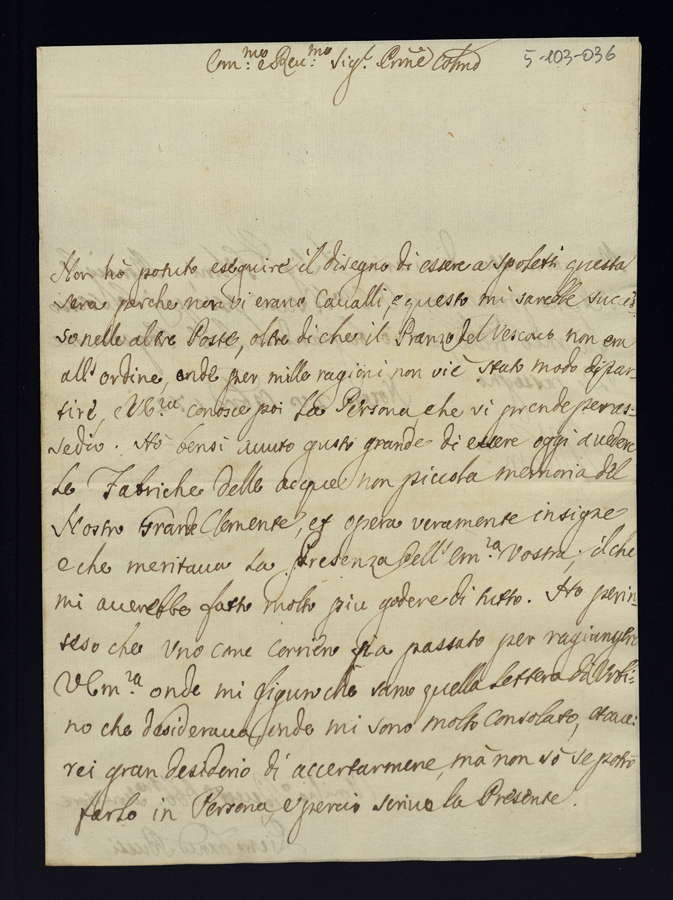 Em.mo e Reu.mo Sig.r Prñe Colmo
5-103-036
Non hò potuto eseguire il disegno di essere a Spoleti questa
sera perche non vi erano Caualli, e questo mi sarebbe succes=
so nelle altre Poste, oltre di che il Pranzo del Vescouo non era
all' ordine, onde per mille ragioni non vi è stato modo di par=
tire, e conosce poi la Persona, che vi prende per as=
sedio. Hò bensi auuto gusto grande di essere oggi a uedere
Le Fabriche delle acque non piccola memoria del
Nostro Grande Clemente, et opera veramente insigne
e che meritaua la Presenza dell' Em.za Vostra; il che
mi auerebbe fatto molto piu godere di tutto. Ho perin=
teso che uno Corriere sia passato per ragiungere
V Em.za onde mi figuro che sara quella lettera da Urbi=
no che desideraua, onde mi sono molto consolato, et aue=
rei gran desiderio di accertarmene, mà non sò se potrò
farlo in Persona, e perciò scriuo la Presente.